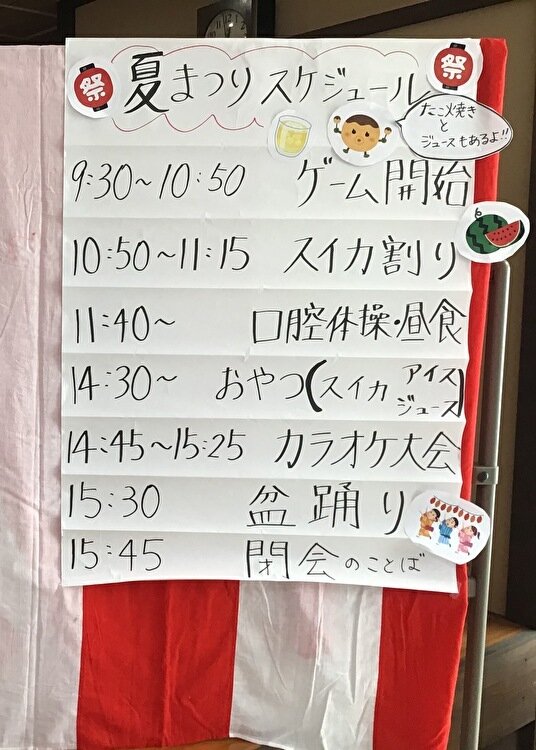 祭 夏まつりスケジュール 祭
たこ焼き
と
ジュースもあるよ!!
9:30〜10:50 ゲーム開始
10:50〜11:15 スイカ割り
11:40〜 口腔体操・昼食
14:30〜 おやつ(スイカ アイス ジュース)
14:45〜15:25 カラオケ大会
15:30 盆踊り
15:45 閉会のことば